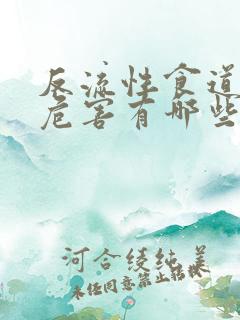 反流性食道
危害有哪些
河合绫纯美
未经同意禁止转载